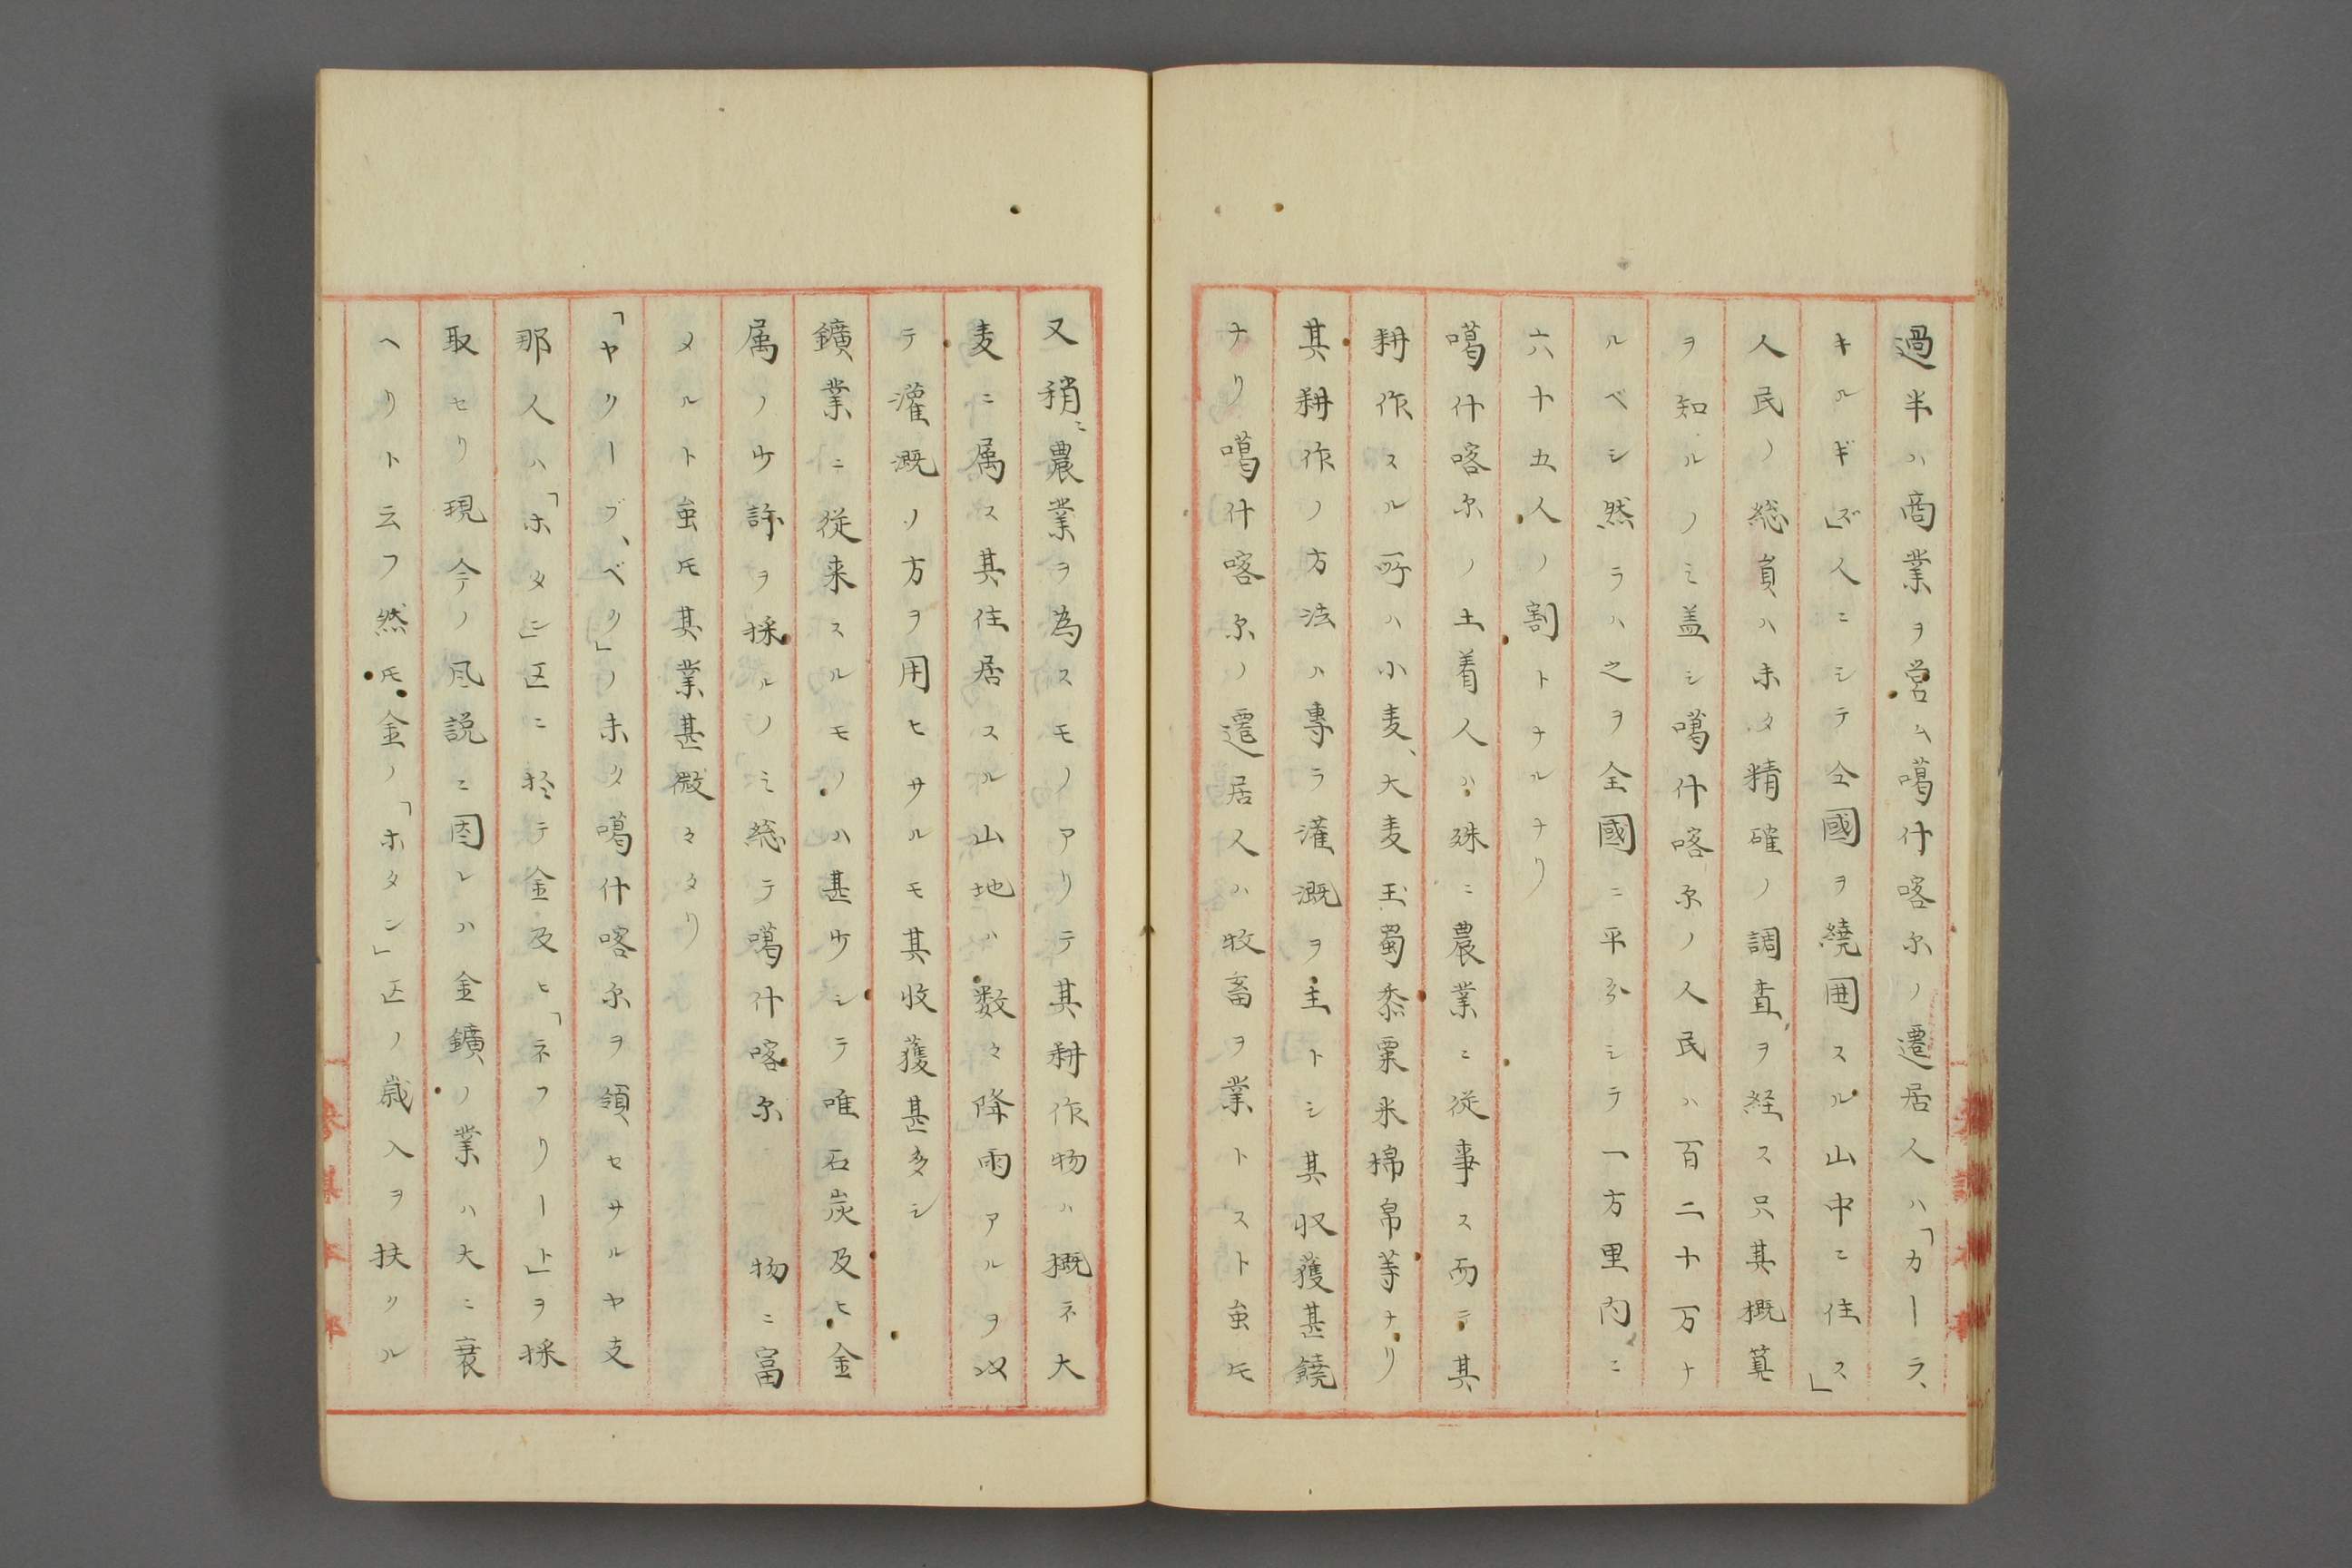 過半ハ商業ヲ営ム噶什喀尓ノ遷居人ハ「カーラ、
キルギズ」人ニシテ全國ヲ繞囲スル山中ニ住ス」
人民ノ総員ハ未タ精確ノ調査ヲ経ス只其概算
ヲ知ルノミ盖シ噶什喀尓ノ人民ハ百二十万ナ
ルベシ然ラハ之ヲ全國ニ平分シテ一方里内ニ
六十五人ノ割トナルナリ
噶什喀尓ノ土着人ハ殊ニ農業ニ従事ス而テ其
耕作スル所ハ小麦、大麦玉蜀黍粟米棉帛等ナリ
其耕作ノ方法ハ専ラ灌漑ヲ主トシ其収獲甚饒
ナリ噶什喀尓ノ遷居人ハ牧畜ヲ業トスト虽𪜈
又稍ニ農業ヲ為スモノアリテ其耕作物ハ概ネ大
麦ニ属ス其住居スル山地ハ数々降雨アルヲ以
テ灌漑ノ方ヲ用ヒサルモ其收獲甚多シ
鑛業ニ従来スルモノハ甚少シテ唯石炭及ヒ金
属ノ少許ヲ採ルノミ総テ噶什喀尓 物ニ富
メルト虽𪜈其業甚微々タリ
「ヤクーブ、ベク」ノ未タ噶什喀尓ヲ領セサルヤ支
那人ハ「ホタン」区ニ於テ金及ヒ「ネフリート」ヲ採
取セリ現今ノ風説ニ因レハ金鑛ノ業ハ大ニ衰
ヘリト云フ然𪜈金ノ「ホタン」区ノ歳入ヲ扶クル